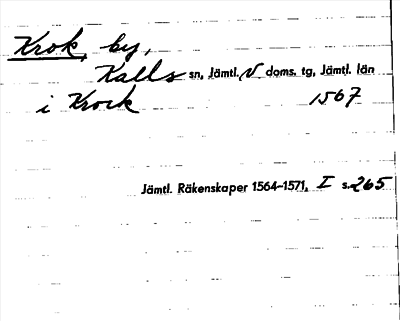 Krok, by,
Kalls sn, Jämtl. V doms. tg, Jämtl. län
i Krock 1567
Jämtl. Räkenskaper 1564–1571, I s. 265